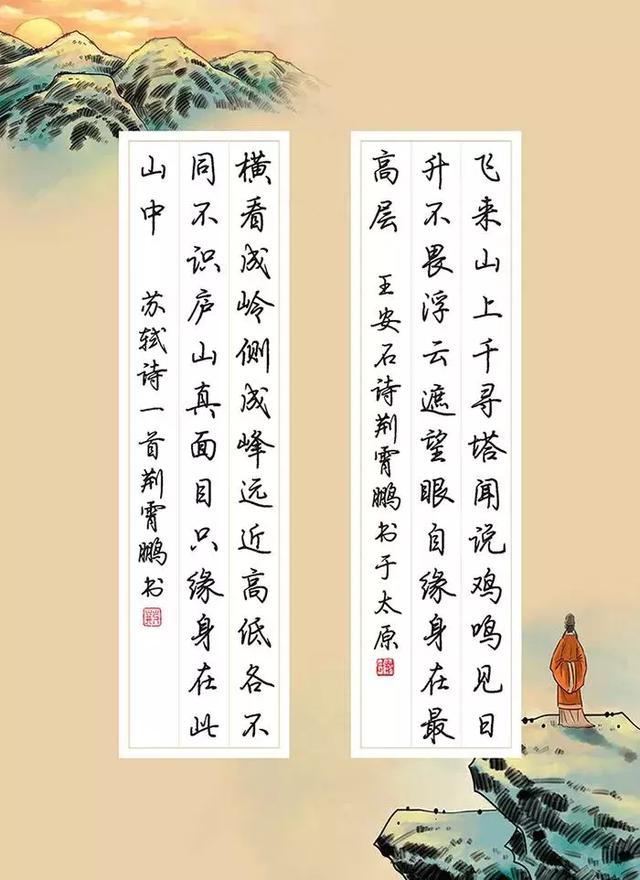 飞来山上千寻塔闻说鸡鸣见日
升不畏浮云遮望眼自缘身在最
高层 王安石诗荆霄鹏书于太原
横看成岭侧成峰远近高低各不
同不识庐山真面目只缘身在此
山中 苏轼诗一首荆霄鹏书